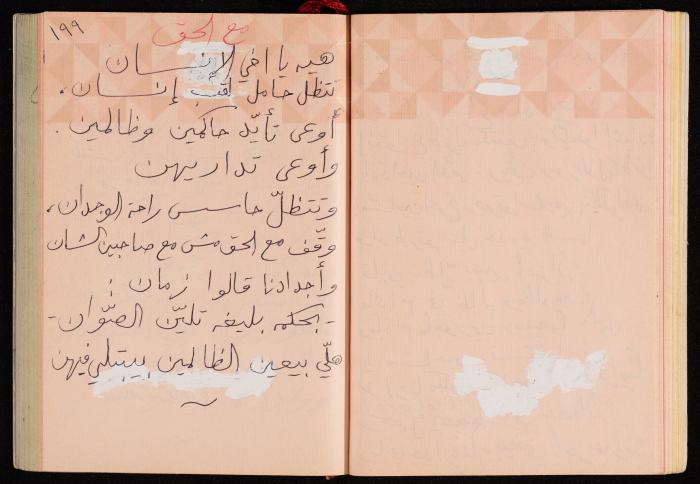 ١٩٩
مع الحق
هيه يا اخي الإنسان
تتظل حامل لقب إنسان،
أوعى تأيّد حاكمين وظالمين.
وأوعى تداريهن
وتتظلّ حاسس راحة الوجدان،
وقّف مع الحق مش مع صاحبين الشان
وأجدادنا قالوا زمان :
- بحكمه بليغه تليّن الصّوّان -
هلّي بيعين الظالمين بيبتلي فيهن
~